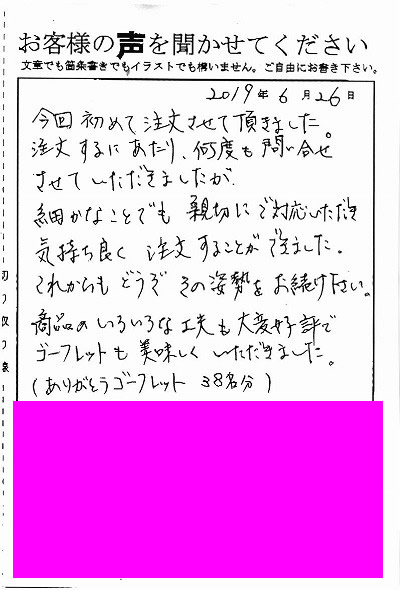 お客様の声を聞かせてください
文章でも箇条書きでもイラストでも構いません。ご自由にお書き下さい。
2019年6月26日
今回初めて注文させて頂きました。
注文するにあたり、何度も問い合せ
させていただきましたが、
細かなことでも親切にご対応いただき
気持ち良く注文することができました。
これからもどうぞその姿勢をお続け下さい。
商品のいろいろな工夫も大変好評で
ゴーフレットも美味しくいただきました。
(ありがとうゴーフレット 38名分)